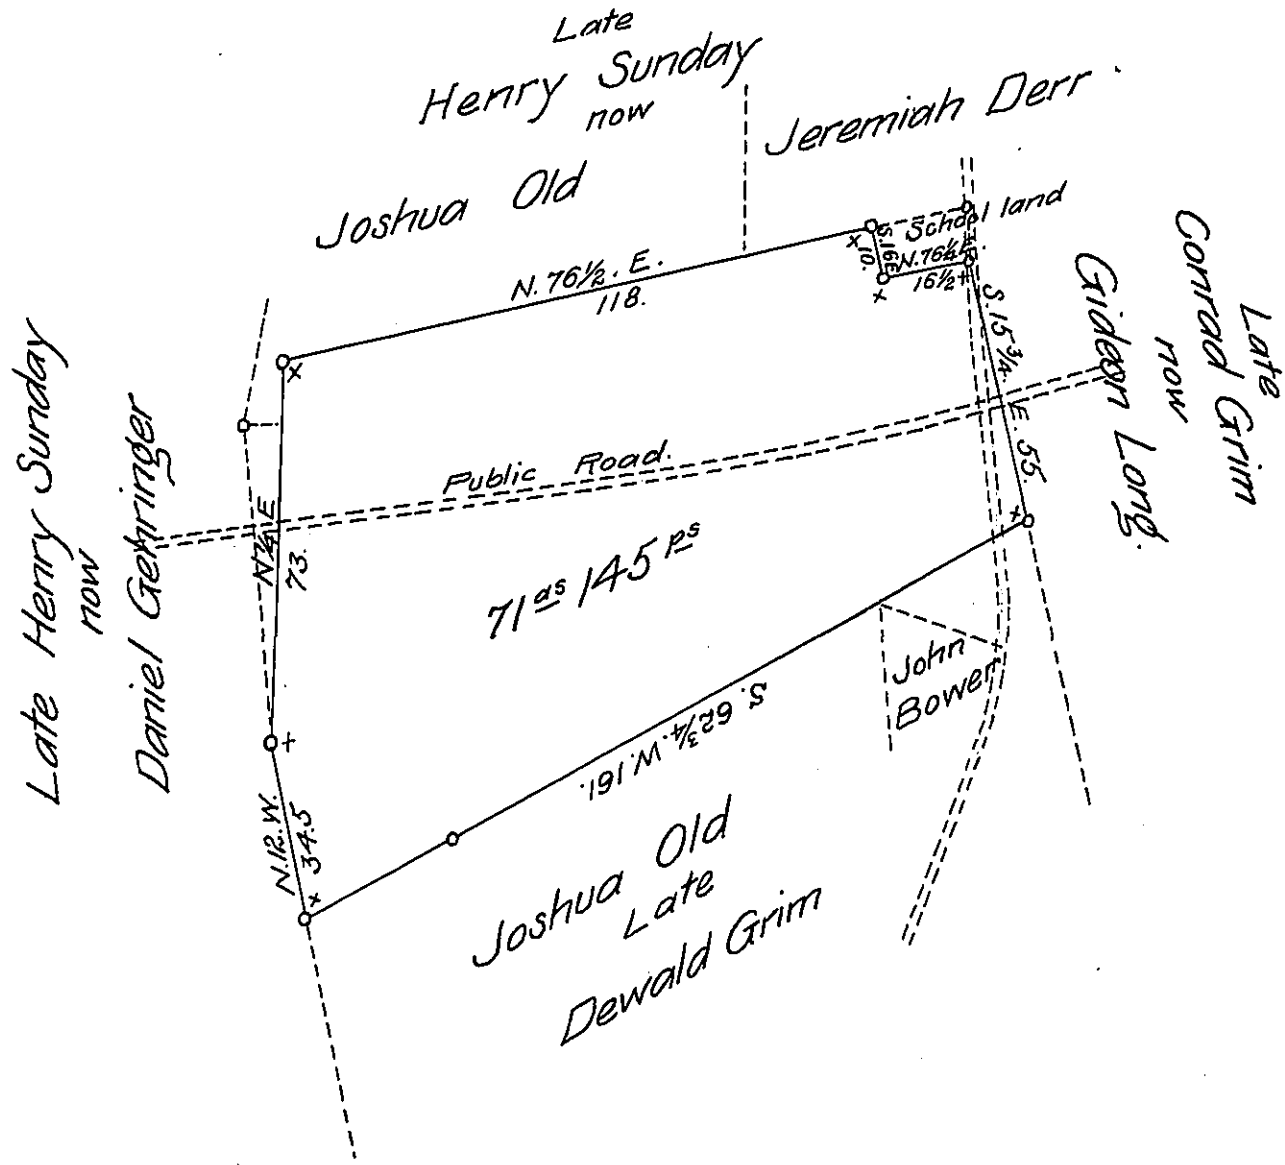 Late
Henry Sunday
now
Joshua Old
Jeremiah Derr
School land
N. 76½. E.
118.
S. 16 E
10.
N. 76¼ E.
16½
S. 15¾ E. 55.
Late
Conrad Grim
now
Gideon Long.
Late Henry Sunday
now
Daniel Gehringer
Public Road.
73.
71 as 145 ps
John
Bower
S. 62¾. W. 161.
N. 12. W.
34.5
Joshua Old
Late
Dewald Grim